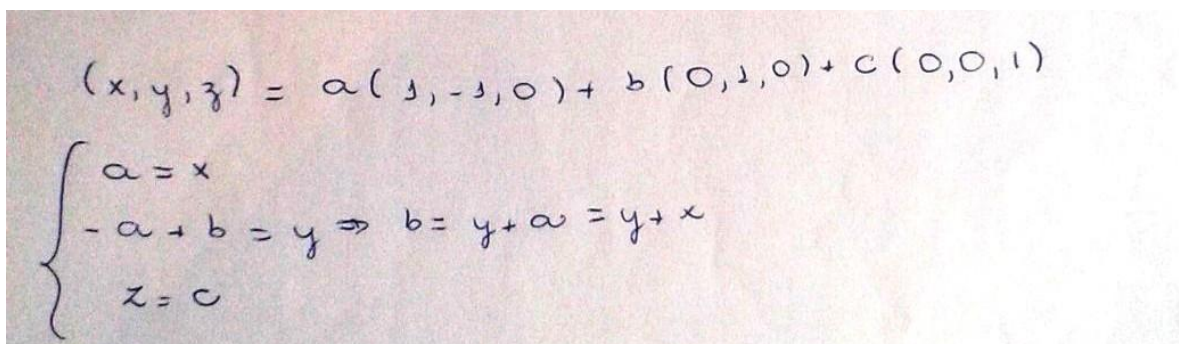 (x, y, z) = a(1, -1, 0) + b(0, 1, 0) + c(0, 0, 1)
a = x
-a + b = y ⇒ b = y + a = y + x
z = c